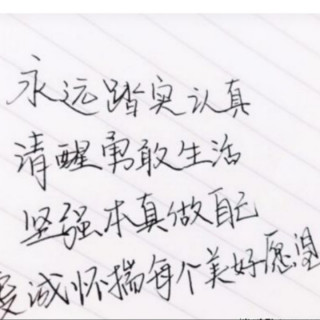 永远踏实认真
清醒勇敢生活
坚强本真做自己
诚怀揣每个美好愿望